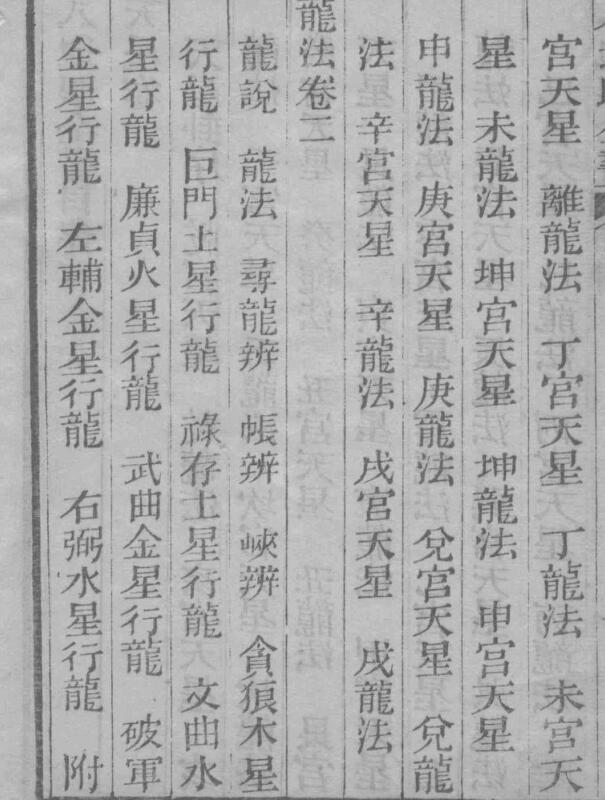 宮天星　離龍法　丁宮天星　丁龍法　未宮天
星　未龍法　坤宮天星　坤龍法　申宮天星
申龍法　庚宮天星　庚龍法　兌宮天星　兌龍
法　辛宮天星　辛龍法　戌宮天星　戌龍法
龍法卷二
龍說　龍法　尋龍辨　帳辨　峽辨　貪狼木星
行龍　巨門土星行龍　祿存土星行龍　文曲水
星行龍　廉貞火星行龍　武曲金星行龍　破軍
金星行龍　左輔金星行龍　右弼水星行龍　附